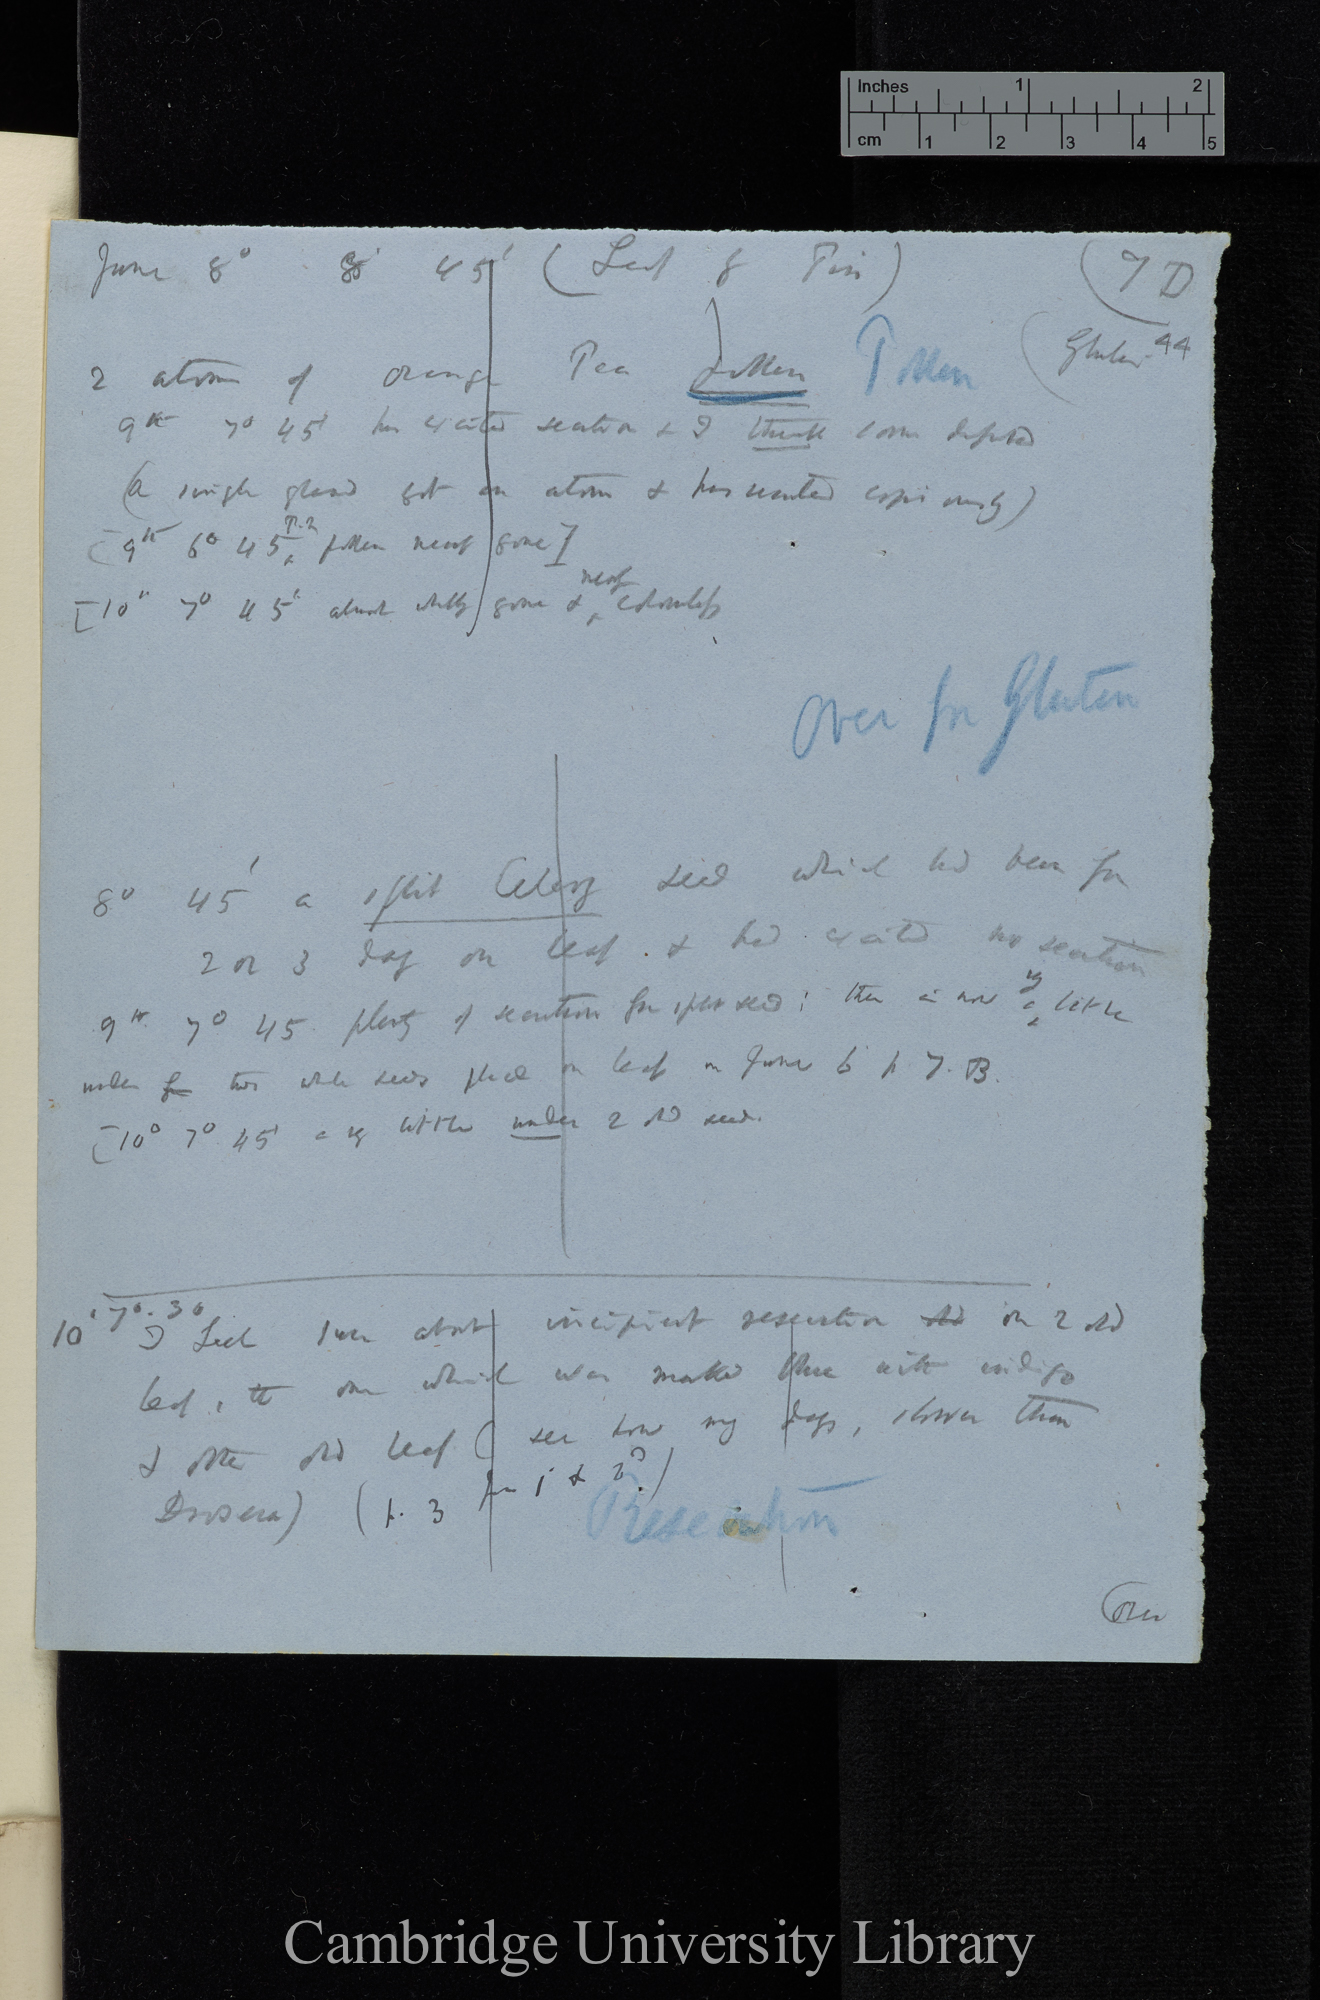 Inches 1 2
cm 1 2 3 4 5
June 8° 8° 45' (Leaf of Pin) (7 D
2 atoms of orange Pea pollen Pollen (Gluten 44
9th 7° 45' has excited secretion & I think some
(a single gland got an atom & has secreted copiously)
[9th 6° 45' P.M pollen nearly gone]
[10th 7° 45' almost wholly gone & nearly colourless
Over for Gluten
8° 45' a split Celery seed which had been for
2 or 3 days on leaf & had excited no secretion
9th 7° 45 plenty of secretion from split seed; there is now vy little
under two whole seeds placed on leaf on June 6 p 7. B.
[10° 7° 45' a vy little under 2 old seeds.
10' 7°. 30 I feel sure about incipient resecretion on 2 old
leaf, the one which was marked blue with indigo
& other old leaf (see how many days, slower than
Drosera) (p. 3 for 1 & 2d)
Resecretion
(Over
Cambridge University Library